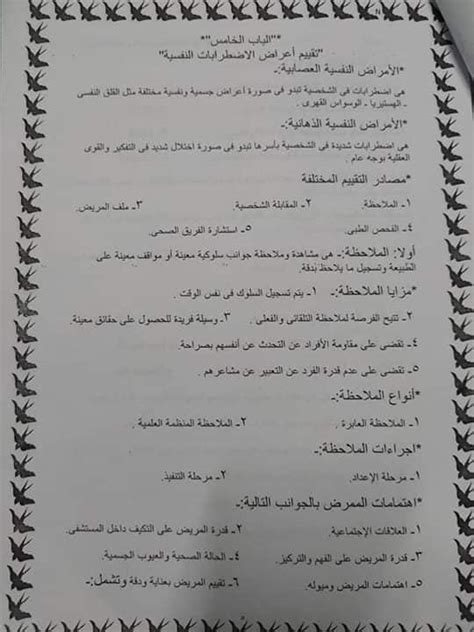 *"الباب الخامس"*
"تقييم أعراض الاضطرابات النفسية"
*الأمراض النفسية العصابية:-
هى اضطرابات فى الشخصية تبدو فى صورة أعراض جسمية ونفسية مختلفة مثل القلق النفسى
ـ الهستيريا ـ الوسواس القهرى .
*الأمراض النفسية الذهانية:-
هى اضطرابات شديدة فى الشخصية بأسرها تبدو فى صورة اختلال شديد فى التفكير والقوى
العقلية بوجه عام .
*مصادر التقييم المختلفة
١- الملاحظة. ٢- المقابلة الشخصية. ٣- ملف المريض.
٤- الفحص الطبى. ٥- استشارة الفريق الصحى.
أولا: الملاحظة:- هى مشاهدة وملاحظة جوانب سلوكية معينة أو مواقف معينة على
الطبيعة وتسجيل ما يلاحظ بدقة.
*مزايا الملاحظة:- ١- يتم تسجيل السلوك فى نفس الوقت .
٢- تتيح الفرصة لملاحظة التلقائى والفعلى . ٣- وسيلة فريدة للحصول على حقائق معينة.
٤- تقضى على مقاومة الأفراد عن التحدث عن أنفسهم بصراحة.
٥- تقضى على عدم قدرة الفرد عن التعبير عن مشاعرهم .
*أنواع الملاحظة:-
١- الملاحظة العابرة . ٢- الملاحظة المنظمة العلمية .
*اجراءات الملاحظة:-
١- مرحلة الإعداد. ٢- مرحلة التنفيذ.
*اهتمامات الممرض بالجوانب التالية:-
١- العلاقات الإجتماعية. ٢- قدرة المريض على التكيف داخل المستشفى.
٣- قدرة المريض على الفهم والتركيز. ٤- الحالة الصحية والعيوب الجسمية.
٥- اهتمامات المريض وميوله. ٦- تقييم المريض بعناية ودقة وتشمل:-